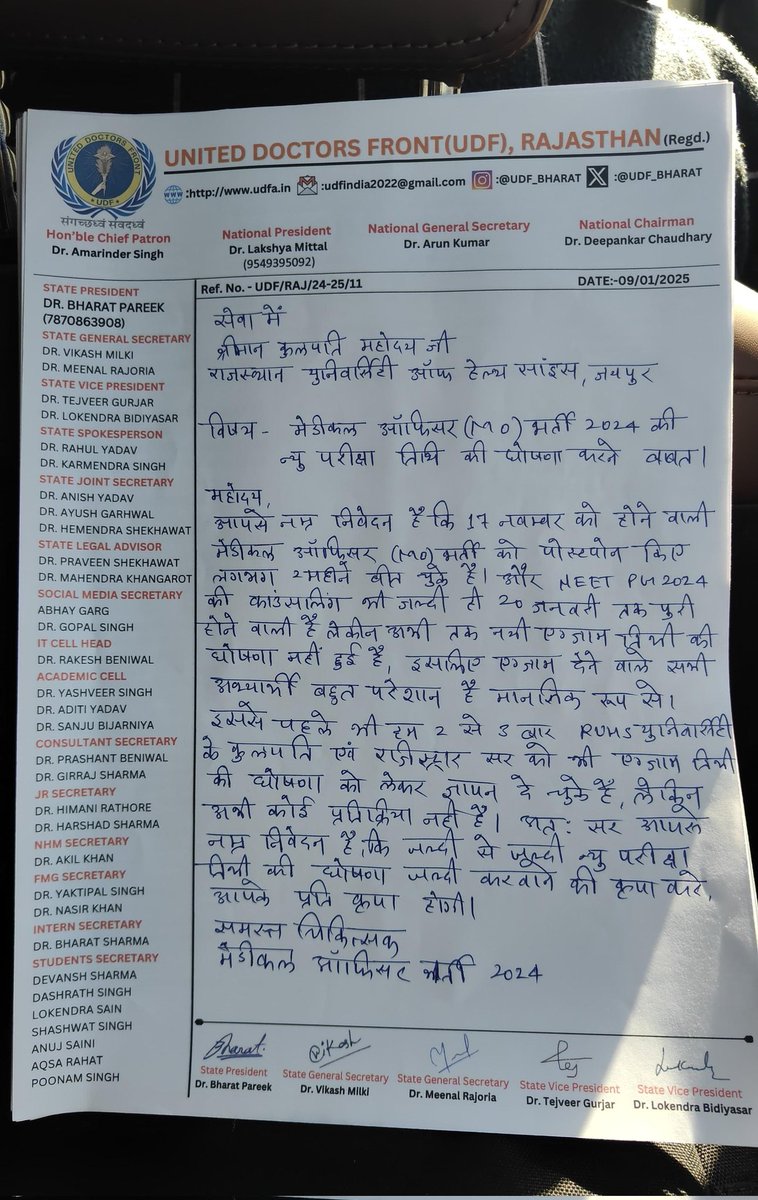 UNITED DOCTORS FRONT
UDF
संगच्छध्वं संवदध्वं
UNITED DOCTORS FRONT(UDF), RAJASTHAN (Regd.)
:http://www.udfa.in :udfindia2022@gmail.com :@UDF_BHARAT :@UDF_BHARAT
Hon'ble Chief Patron
Dr. Amarinder Singh
National President
Dr. Lakshya Mittal
(9549395092)
National General Secretary
Dr. Arun Kumar
National Chairman
Dr. Deepankar Chaudhary
STATE PRESIDENT
DR. BHARAT PAREEK
(7870863908)
STATE GENERAL SECRETARY
DR. VIKASH MILKI
DR. MEENAL RAJORIA
STATE VICE PRESIDENT
DR. TEJVEER GURJAR
DR. LOKENDRA BIDIYASAR
STATE SPOKESPERSON
DR. RAHUL YADAV
DR. KARMENDRA SINGH
STATE JOINT SECRETARY
DR. ANISH YADAV
DR. AYUSH GARHWAL
DR. HEMENDRA SHEKHAWAT
STATE LEGAL ADVISOR
DR. PRAVEEN SHEKHAWAT
DR. MAHENDRA KHANGAROT
SOCIAL MEDIA SECRETARY
ABHAY GARG
DR. GOPAL SINGH
IT CELL HEAD
DR. RAKESH BENIWAL
ACADEMIC CELL
DR. YASHVEER SINGH
DR. ADITI YADAV
DR. SANJU BIJARNIYA
CONSULTANT SECRETARY
DR. PRASHANT BENIWAL
DR. GIRRAJ SHARMA
JR SECRETARY
DR. HIMANI RATHORE
DR. HARSHAD SHARMA
NHM SECRETARY
DR. AKIL KHAN
FMG SECRETARY
DR. YAKTIPAL SINGH
DR. NASIR KHAN
INTERN SECRETARY
DR. BHARAT SHARMA
STUDENTS SECRETARY
DEVANSH SHARMA
DASHRATH SINGH
LOKENDRA SAIN
SHASHWAT SINGH
ANUJ SAINI
AQSA RAHAT
POONAM SINGH
Ref. No. - UDF/RAJ/24-25/11 DATE:-09/01/2025
सेवा में
श्रीमान कुलपति महोदय जी
राजस्थान युनिवर्सिटी ऑफ हेल्थ साइंस, जयपुर
विषय - मेडीकल ऑफिसर (MO) भर्ती 2024 की
न्यु परीक्षा तिथि की घोषणा करने बाबत।
महोदय,
आपसे नम्र निवेदन है कि 17 नवम्बर को होने वाली
मेडीकल ऑफिसर (MO) भर्ती को पोस्टपोन किए
लगभग 2 महीने बीत चुके है। और NEET PG 2024
की काउंसलिंग भी जल्दी ही 20 जनवरी तक पुरी
होने वाली है लेकीन अभी तक नयी एग्जाम तिथी की
घोषणा नहीं हुई है, इसलिए एग्जाम देने वाले सभी
अभ्यार्थी बहुत परेशान है मानसिक रूप से।
इससे पहले भी हम 2 से 3 बार RUHS युनिवर्सिटी
के कुलपति एवं रजिस्ट्रार सर को भी एग्जाम तिथी
की घोषणा को लेकर ज्ञापन दे चुके है, लेकिन
अभी कोई प्रतिक्रिया नही है। अत: सर आपसे
नम्र निवेदन है, कि जल्दी से जल्दी न्यु परीक्षा
तिथी की घोषणा जल्दी करवाने की कृपा करे,
आपके प्रति कृपा होगी।
समस्त चिकित्सक
मेडीकल ऑफिसर भर्ती 2024
Bharat
Vikash
State President
Dr. Bharat Pareek
State General Secretary
Dr. Vikash Milki
State General Secretary
Dr. Meenal Rajoria
State Vice President
Dr. Tejveer Gurjar
State Vice President
Dr. Lokendra Bidiyasar